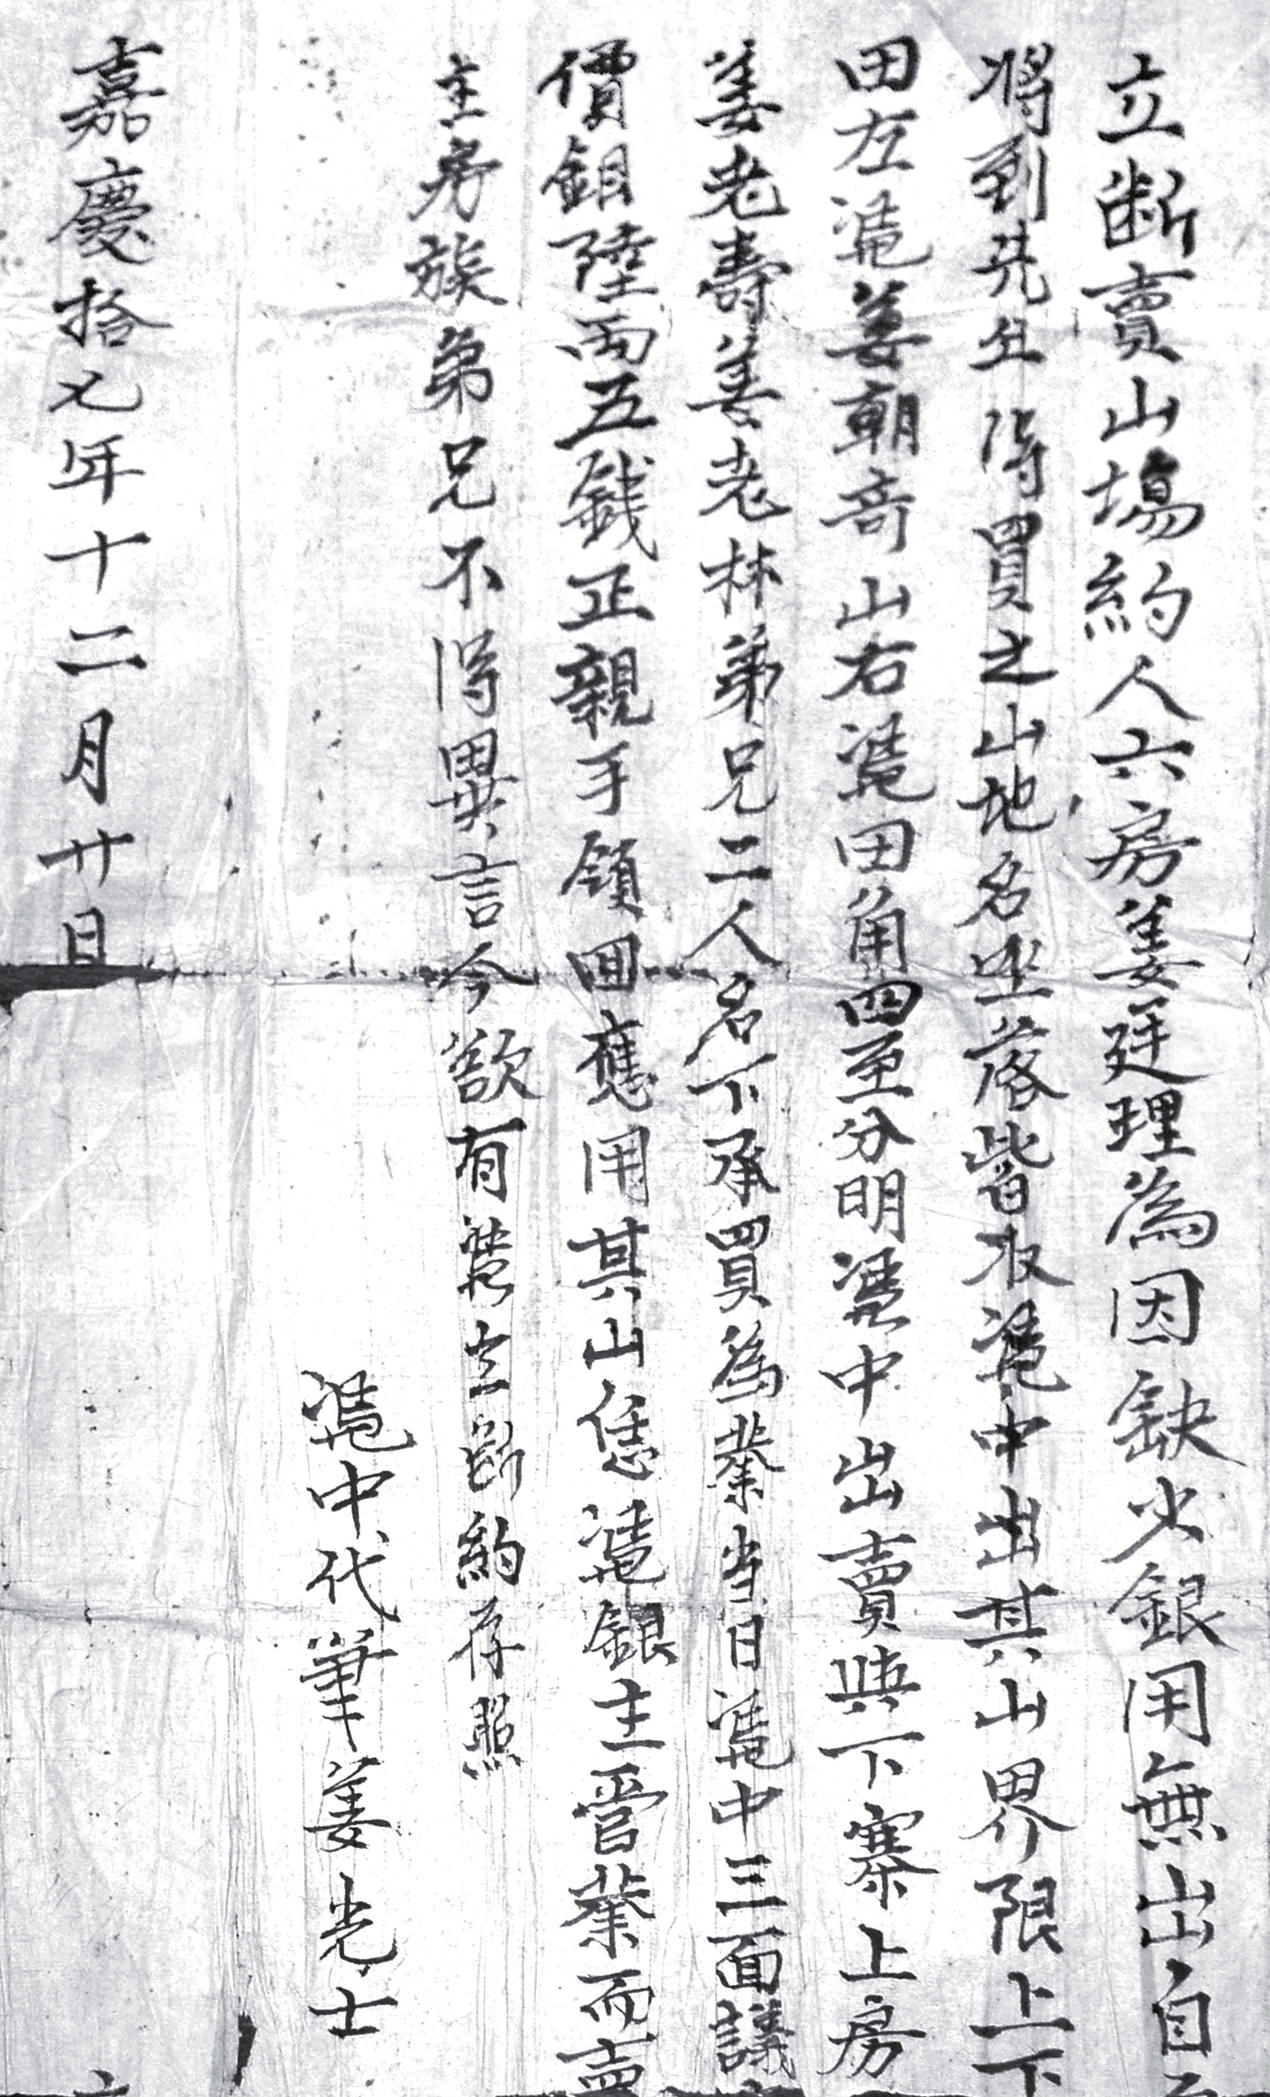 立斷賣山塲約人六房姜廷理為因缺少銀用無出自
將到先年得買之山地名坐落皆木凴中出其山界限上下
田左凴姜朝奇山右凴田角四至分明凴中出賣與下寨上房
姜老壽姜老林弟兄二人名下承買為業当日凴中三面議
價銀陸兩五錢正親手領回應用其山恁凴銀主管業而賣
主房族弟兄不得異言今欲有凴立斷約存照
凴中代筆姜光士
嘉慶拾七年十二月廿日